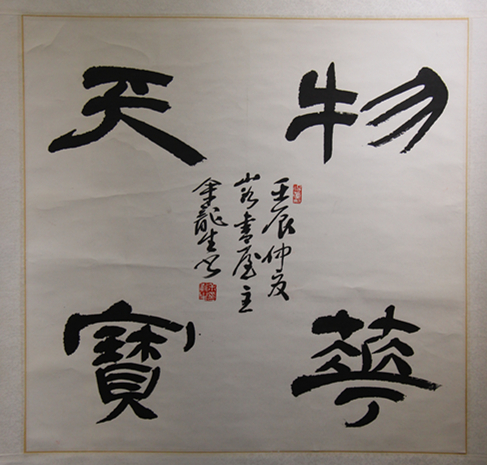 物華
天寶
壬辰仲夏
岩書屋主
余龍生書